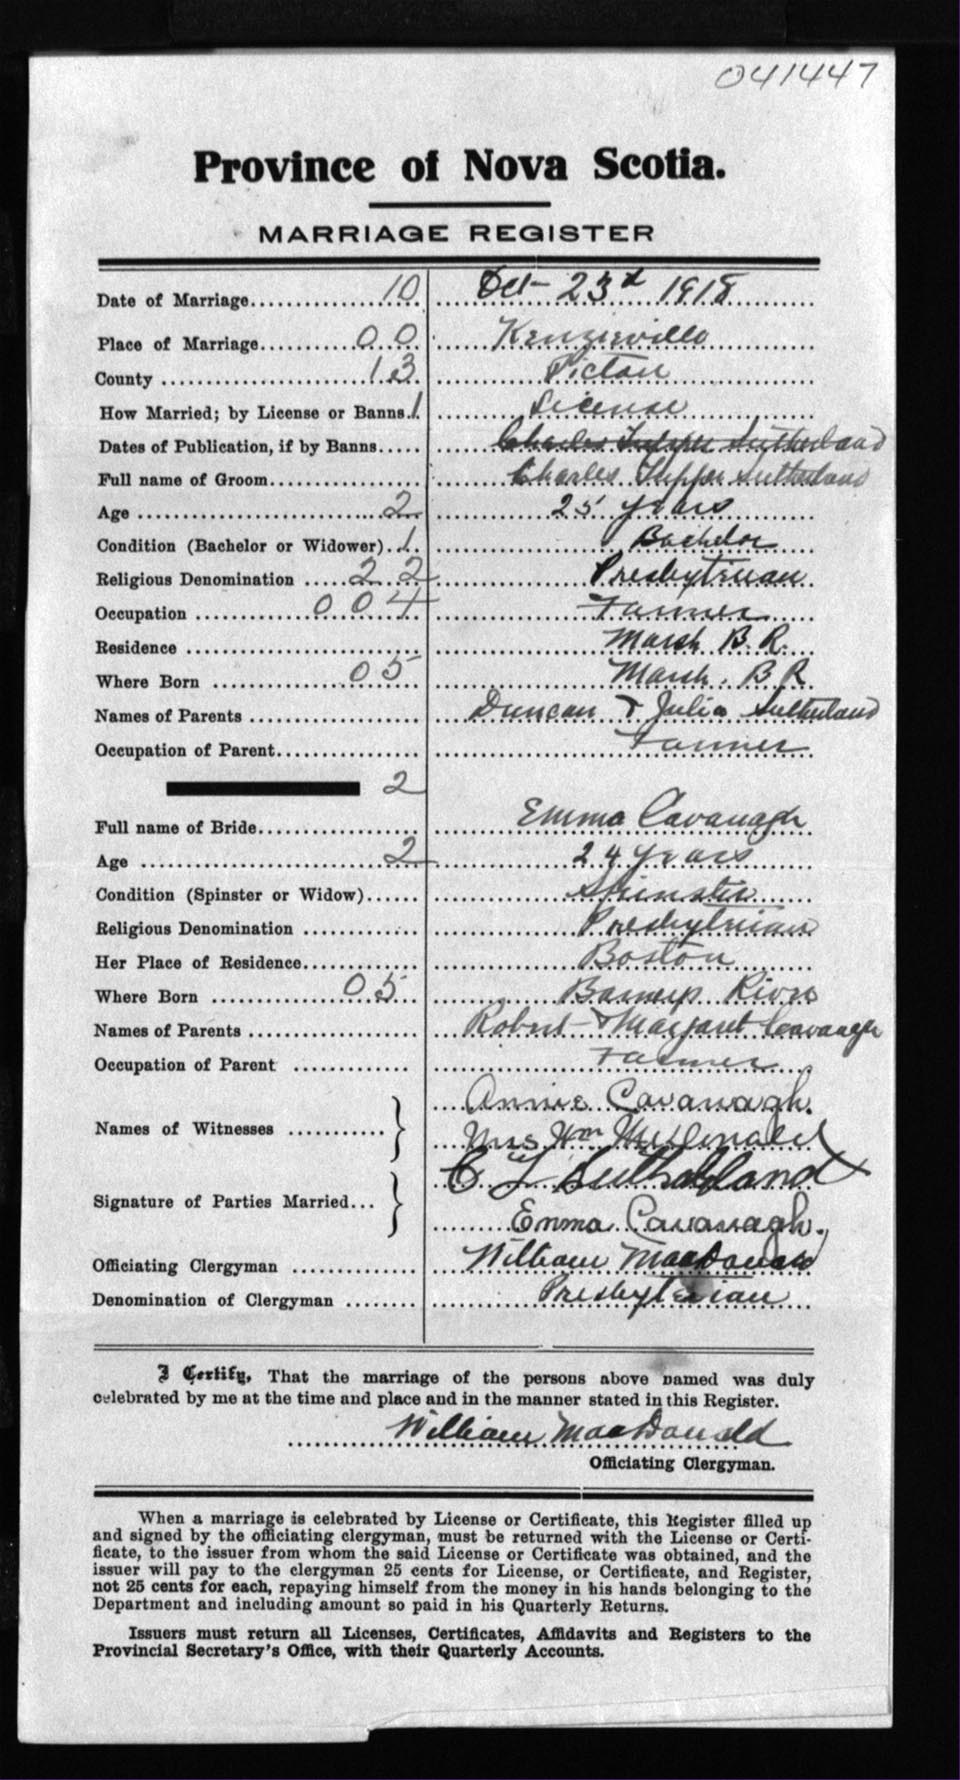 041447
Province of Nova Scotia.
MARRIAGE REGISTER
Date of Marriage 10 Oct 23d 1918
Place of Marriage 00 Kenzieville
County 13 Pictou
How Married; by License or Banns 1 License
Dates of Publication, if by Banns Charles Tupper Sutherland
Full name of Groom Charles Tupper Sutherland
Age 2 25 years
Condition (Bachelor or Widower) 1 Bachelor
Religious Denomination 22 Presbyterian
Occupation 004 Farmer
Residence Marsh B. R.
Where Born 05 Marsh. B R
Names of Parents Duncan & Julia Sutherland
Occupation of Parent Farmer
2
Full name of Bride Emma Cavanagh
Age 2 24 years
Condition (Spinster or Widow) Spinster
Religious Denomination Presbyterian
Her Place of Residence Boston
Where Born 05 River
Names of Parents Robert & Margaret Cavanagh
Occupation of Parent Farmer
Names of Witnesses Annie Cavanagh.
Mrs Wm McDonald
Signature of Parties Married C T Sutherland
Emma Cavanagh.
Officiating Clergyman William MacDonald
Denomination of Clergyman Presbyterian
I Certify, That the marriage of the persons above named was duly
celebrated by me at the time and place and in the manner stated in this Register.
William MacDonald
Officiating Clergyman.
When a marriage is celebrated by License or Certificate, this Register filled up
and signed by the officiating clergyman, must be returned with the License or Certi-
ficate, to the issuer from whom the said License or Certificate was obtained, and the
issuer will pay to the clergyman 25 cents for License, or Certificate, and Register,
not 25 cents for each, repaying himself from the money in his hands belonging to the
Department and including amount so paid in his Quarterly Returns.
Issuers must return all Licenses, Certificates, Affidavits and Registers to the
Provincial Secretary's Office, with their Quarterly Accounts.